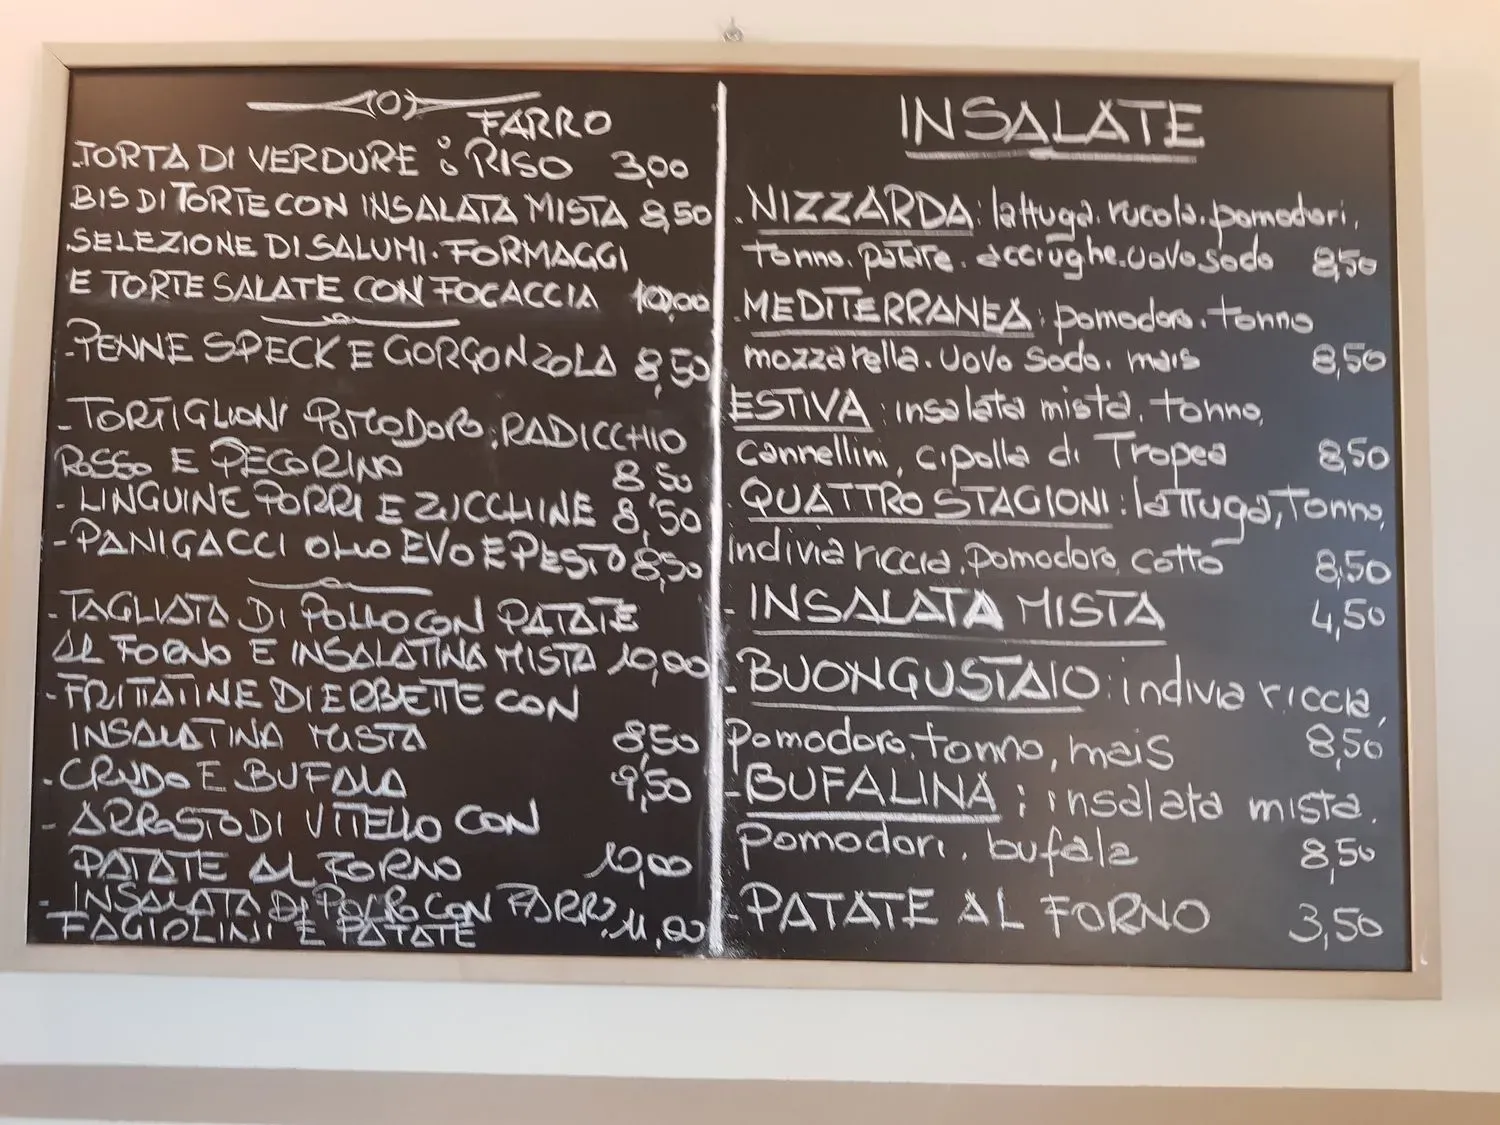 FARRO
TORTA DI VERDURE : RISO 3,00
BIS DI TORTE CON INSALATA MISTA 8,50
SELEZIONE DI SALUMI. FORMAGGI
E TORTE SALATE CON FOCACCIA 10,00
-PENNE SPECK E GORGONZOLA 8,50
-TORTIGLIONI POMODORO, RADICCHIO
ROSSO E PECORINO 8,50
-LINGUINE PORRI E ZUCCHINE 8,50
-PANIGACCI OLIO EVO E PESTO 8,50
-TAGLIATA DI POLLO CON PATATE
AL FORNO E INSALATINA MISTA 10,00
-FRITTATINE DI ERBETTE CON
INSALATINA MISTA 8,50
-CRUDO E BUFALA 9,50
-ARROSTO DI VITELLO CON
PATATE AL FORNO 10,00
-INSALATA DI POLPO CON FARRO,
FAGIOLINI E PATATE 11,00
INSALATE
.NIZZARDA: lattuga. rucola. pomodori,
Tonno. patate. acciughe. uovo sodo 8,50
.MEDITERRANEA: pomodoro. tonno
mozzarella. uovo sodo. mais 8,50
ESTIVA: insalata mista, tonno,
cannellini, cipolla di Tropea 8,50
QUATTRO STAGIONI: lattuga, Tonno,
indivia riccia, pomodoro, cotto 8,50
-INSALATA MISTA 4,50
-BUONGUSTAIO: indivia riccia,
pomodoro, tonno, mais 8,50
-BUFALINA: insalata mista.
pomodori, bufala 8,50
-PATATE AL FORNO 3,50